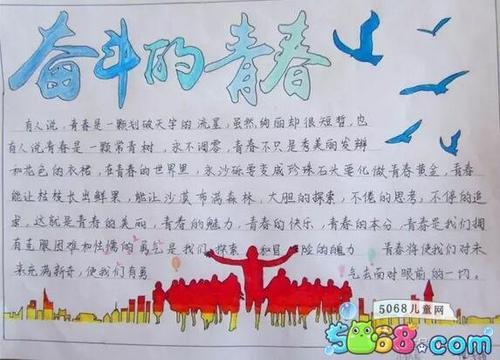 奋斗的青春
有人说,青春是一颗划破天宇的流星,虽然绚丽却很短暂,也
有人说青春是一颗常青树,永不调零,青春不只是秀美的发辫
和花色的衣裙,在青春的世界里,水沙砾要变成珍珠石头要化做青春黄金,青春
能让枯枝长出鲜果,能让沙漠布满森林,大胆的探索,不倦的思考,不停的追
求,这就是青春的美丽,青春的魅力,青春的快乐,青春的本分,青春是我们拥
有征服困难和怯懦的勇气是我们探索和冒险的魄力 青春将使我们对未
来充满新奇,使我们有勇气去面对眼前的一切。
5068儿童网
5068.com